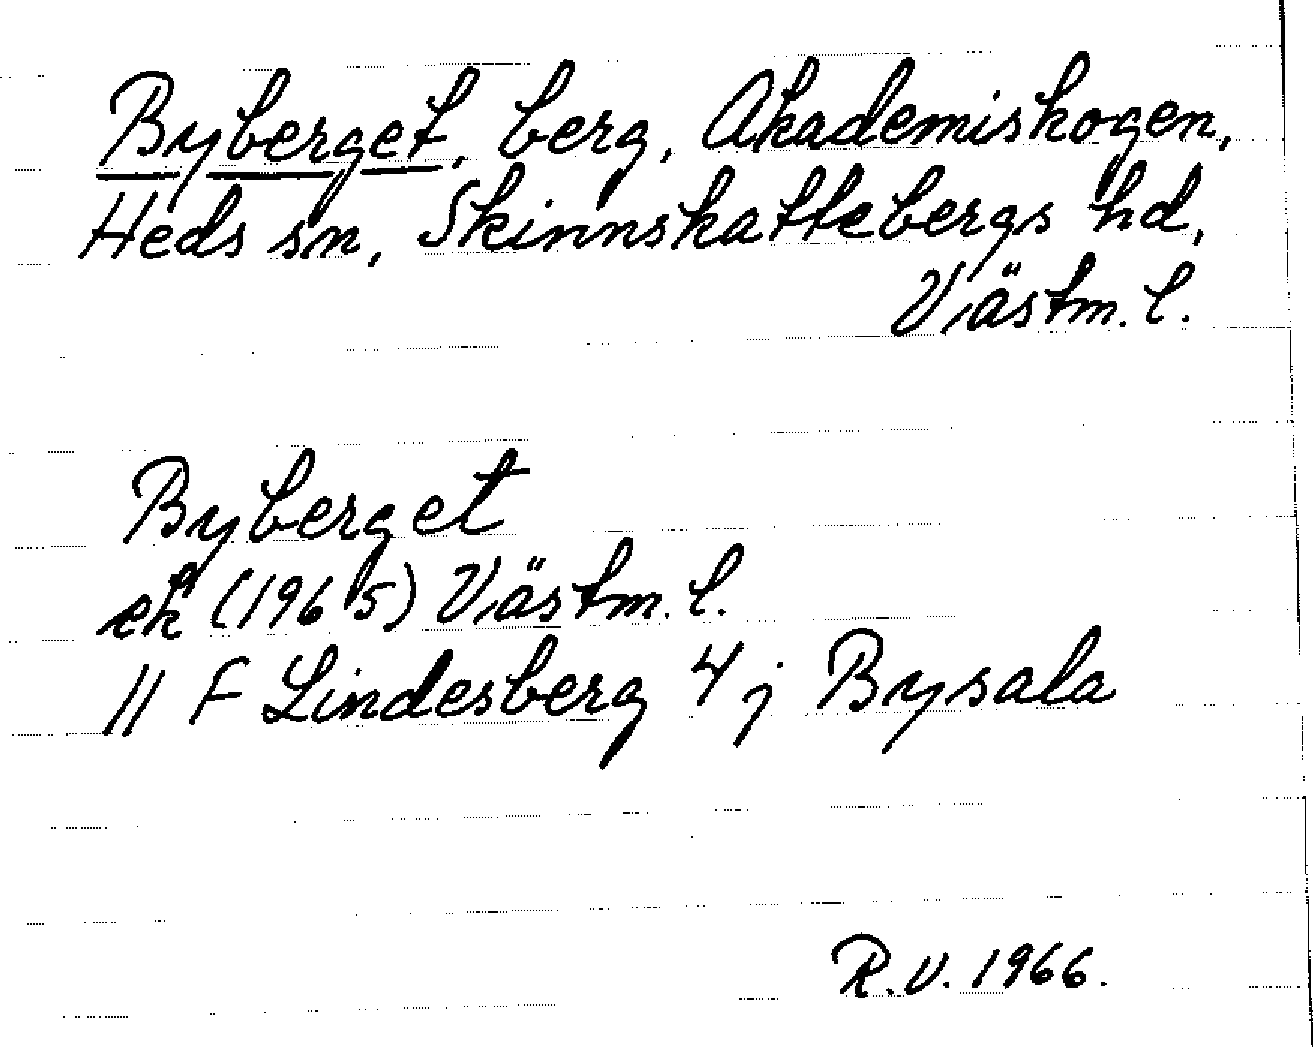 Byberget, berg, Akademiskogen,
Heds sn, Skinnskattebergs hd,
Västm. l.
Byberget
ek (1965) Västm. l.
11 F Lindesberg 4 j Bysala
R.V. 1966.